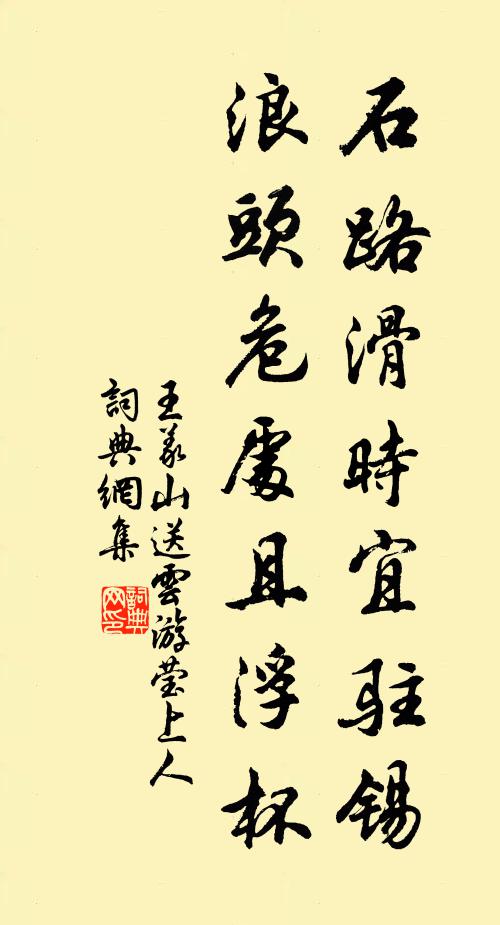 石路滑時宜駐錫
浪頭危處且浮杯
王義山送雲游瑩上人
詞典網集
詞典
网印